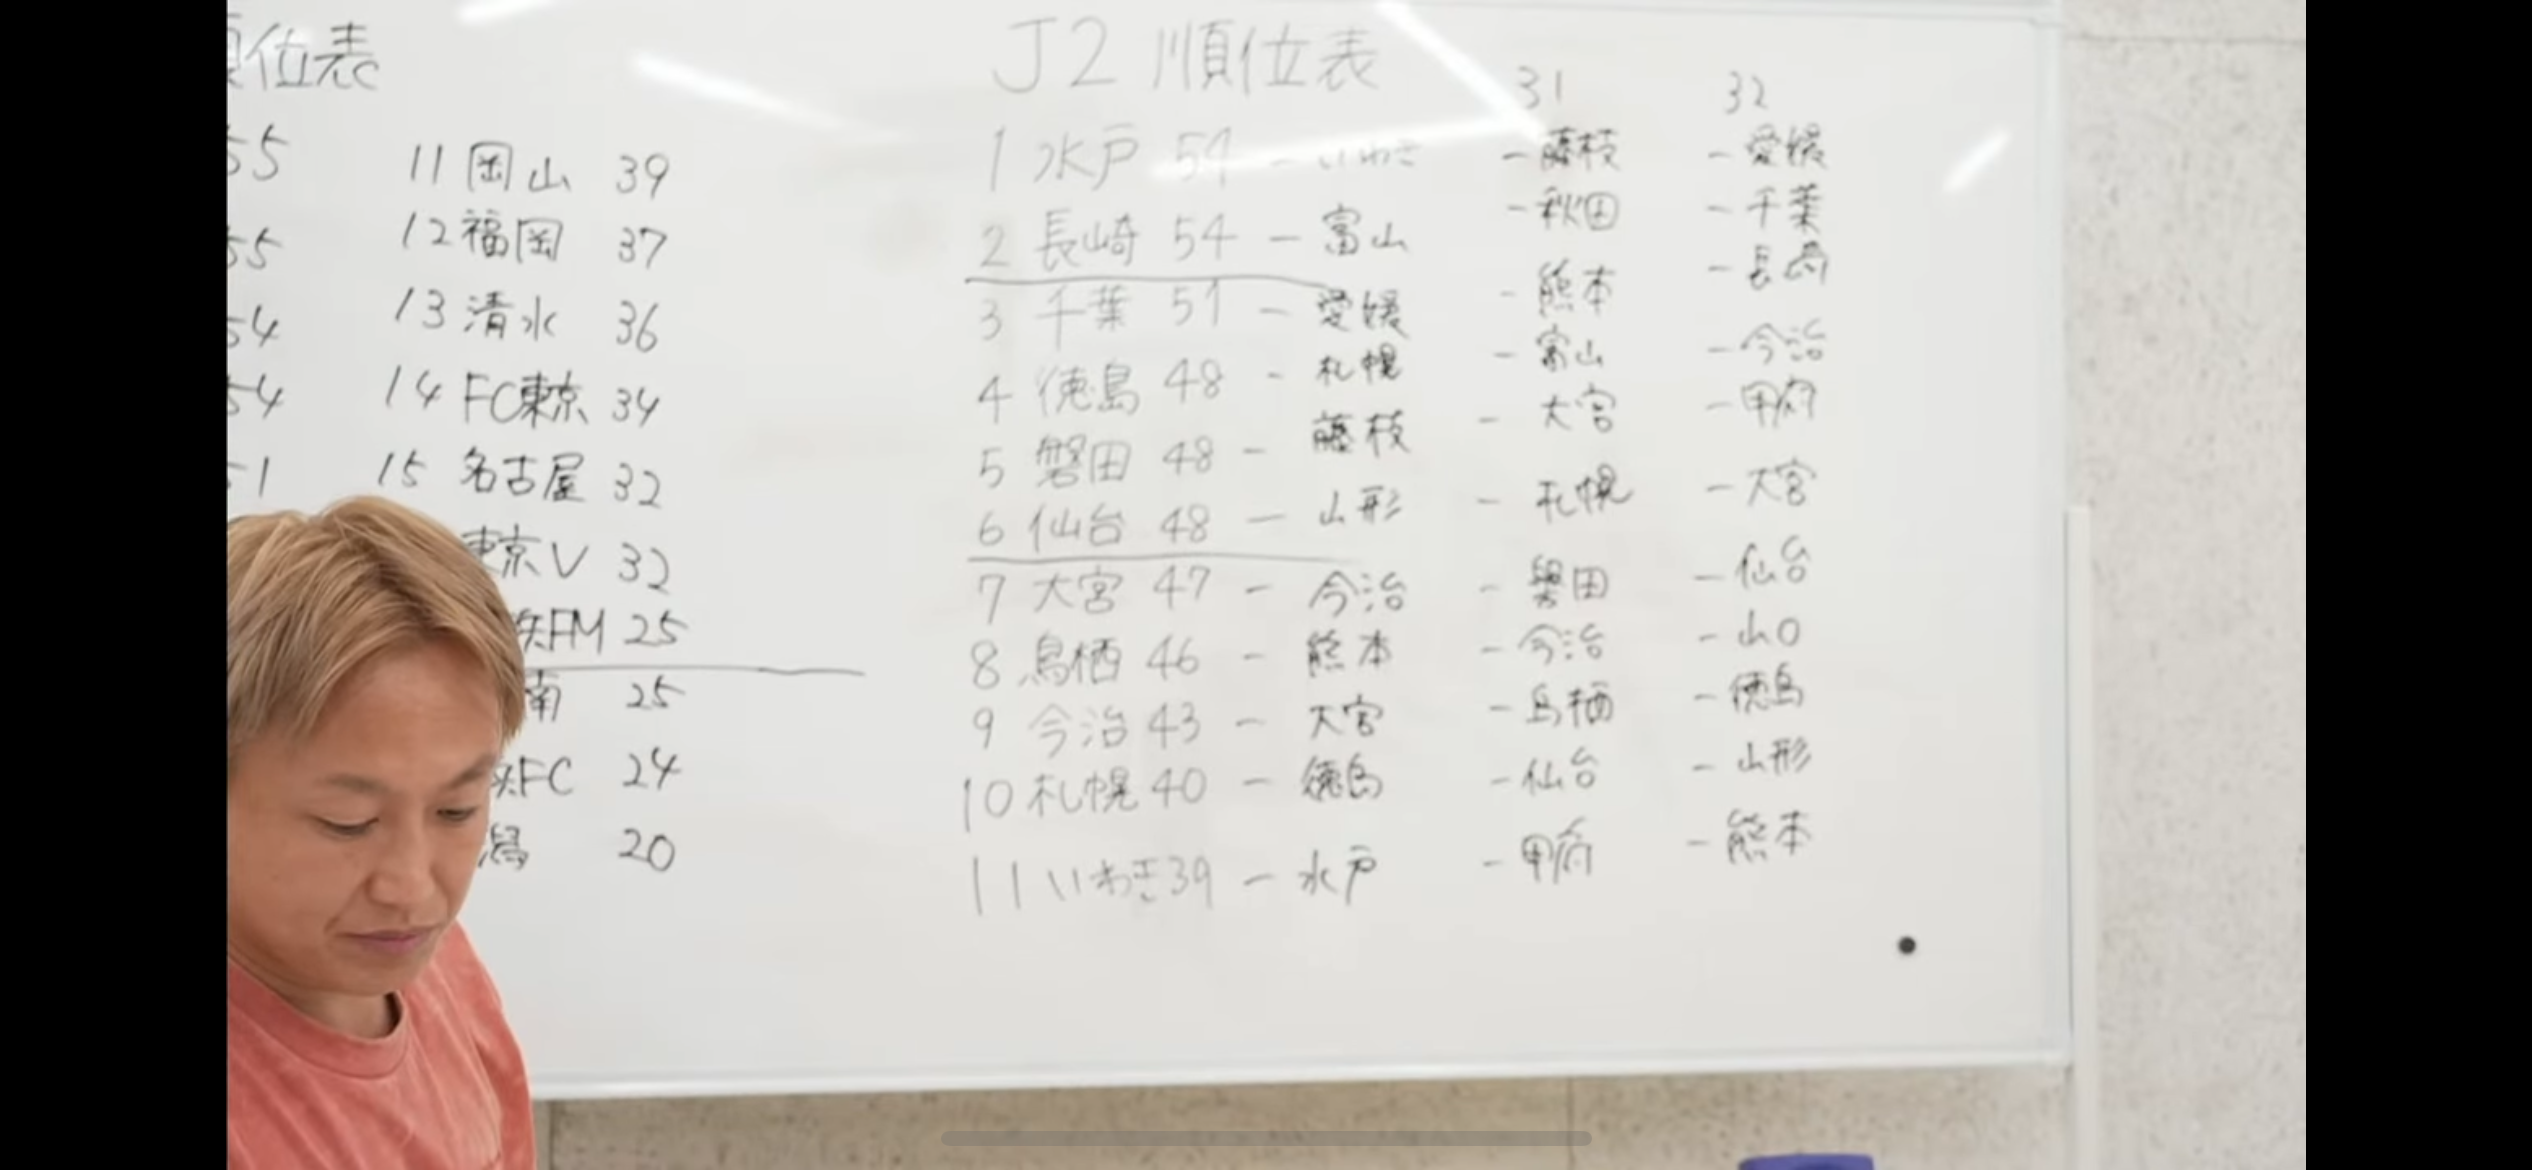 位表
55
55
54
54
51
11 岡山 39
12 福岡 37
13 清水 36
14 FC東京 34
15 名古屋 32
東京V 32
FM 25
南 25
FC 24
潟 20
J2 順位表
31 32
1 水戸 54 - いわき - 藤枝 - 愛媛
2 長崎 54 - 富山 - 秋田 - 千葉
3 千葉 51 - 愛媛 - 熊本 - 長崎
4 徳島 48 - 札幌 - 富山 - 今治
5 磐田 48 - 藤枝 - 大宮 - 甲府
6 仙台 48 - 山形 - 札幌 - 大宮
7 大宮 47 - 今治 - 磐田 - 仙台
8 鳥栖 46 - 熊本 - 今治 - 山口
9 今治 43 - 大宮 - 鳥栖 - 徳島
10 札幌 40 - 徳島 - 仙台 - 山形
11 いわき 39 - 水戸 - 甲府 - 熊本